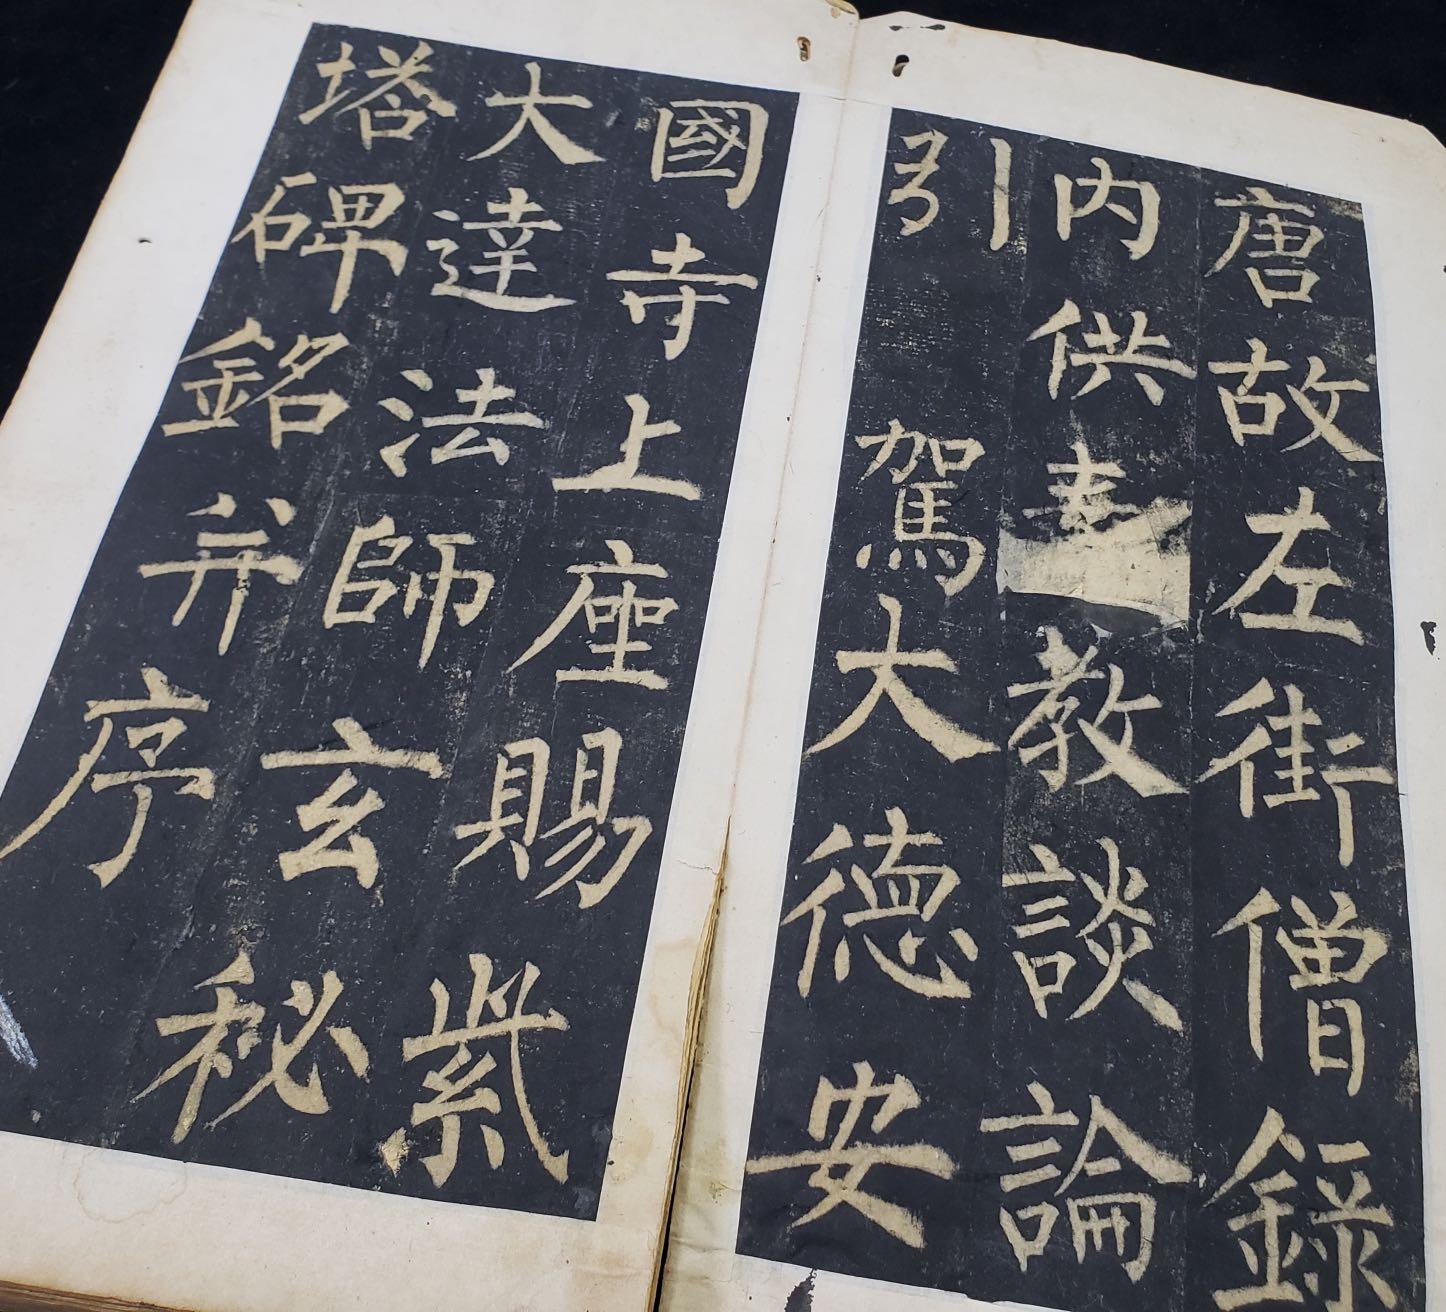 唐故左街僧録
内供奉三教談論
引駕大德安
國寺上座賜紫
大達法師玄秘
塔碑銘并序